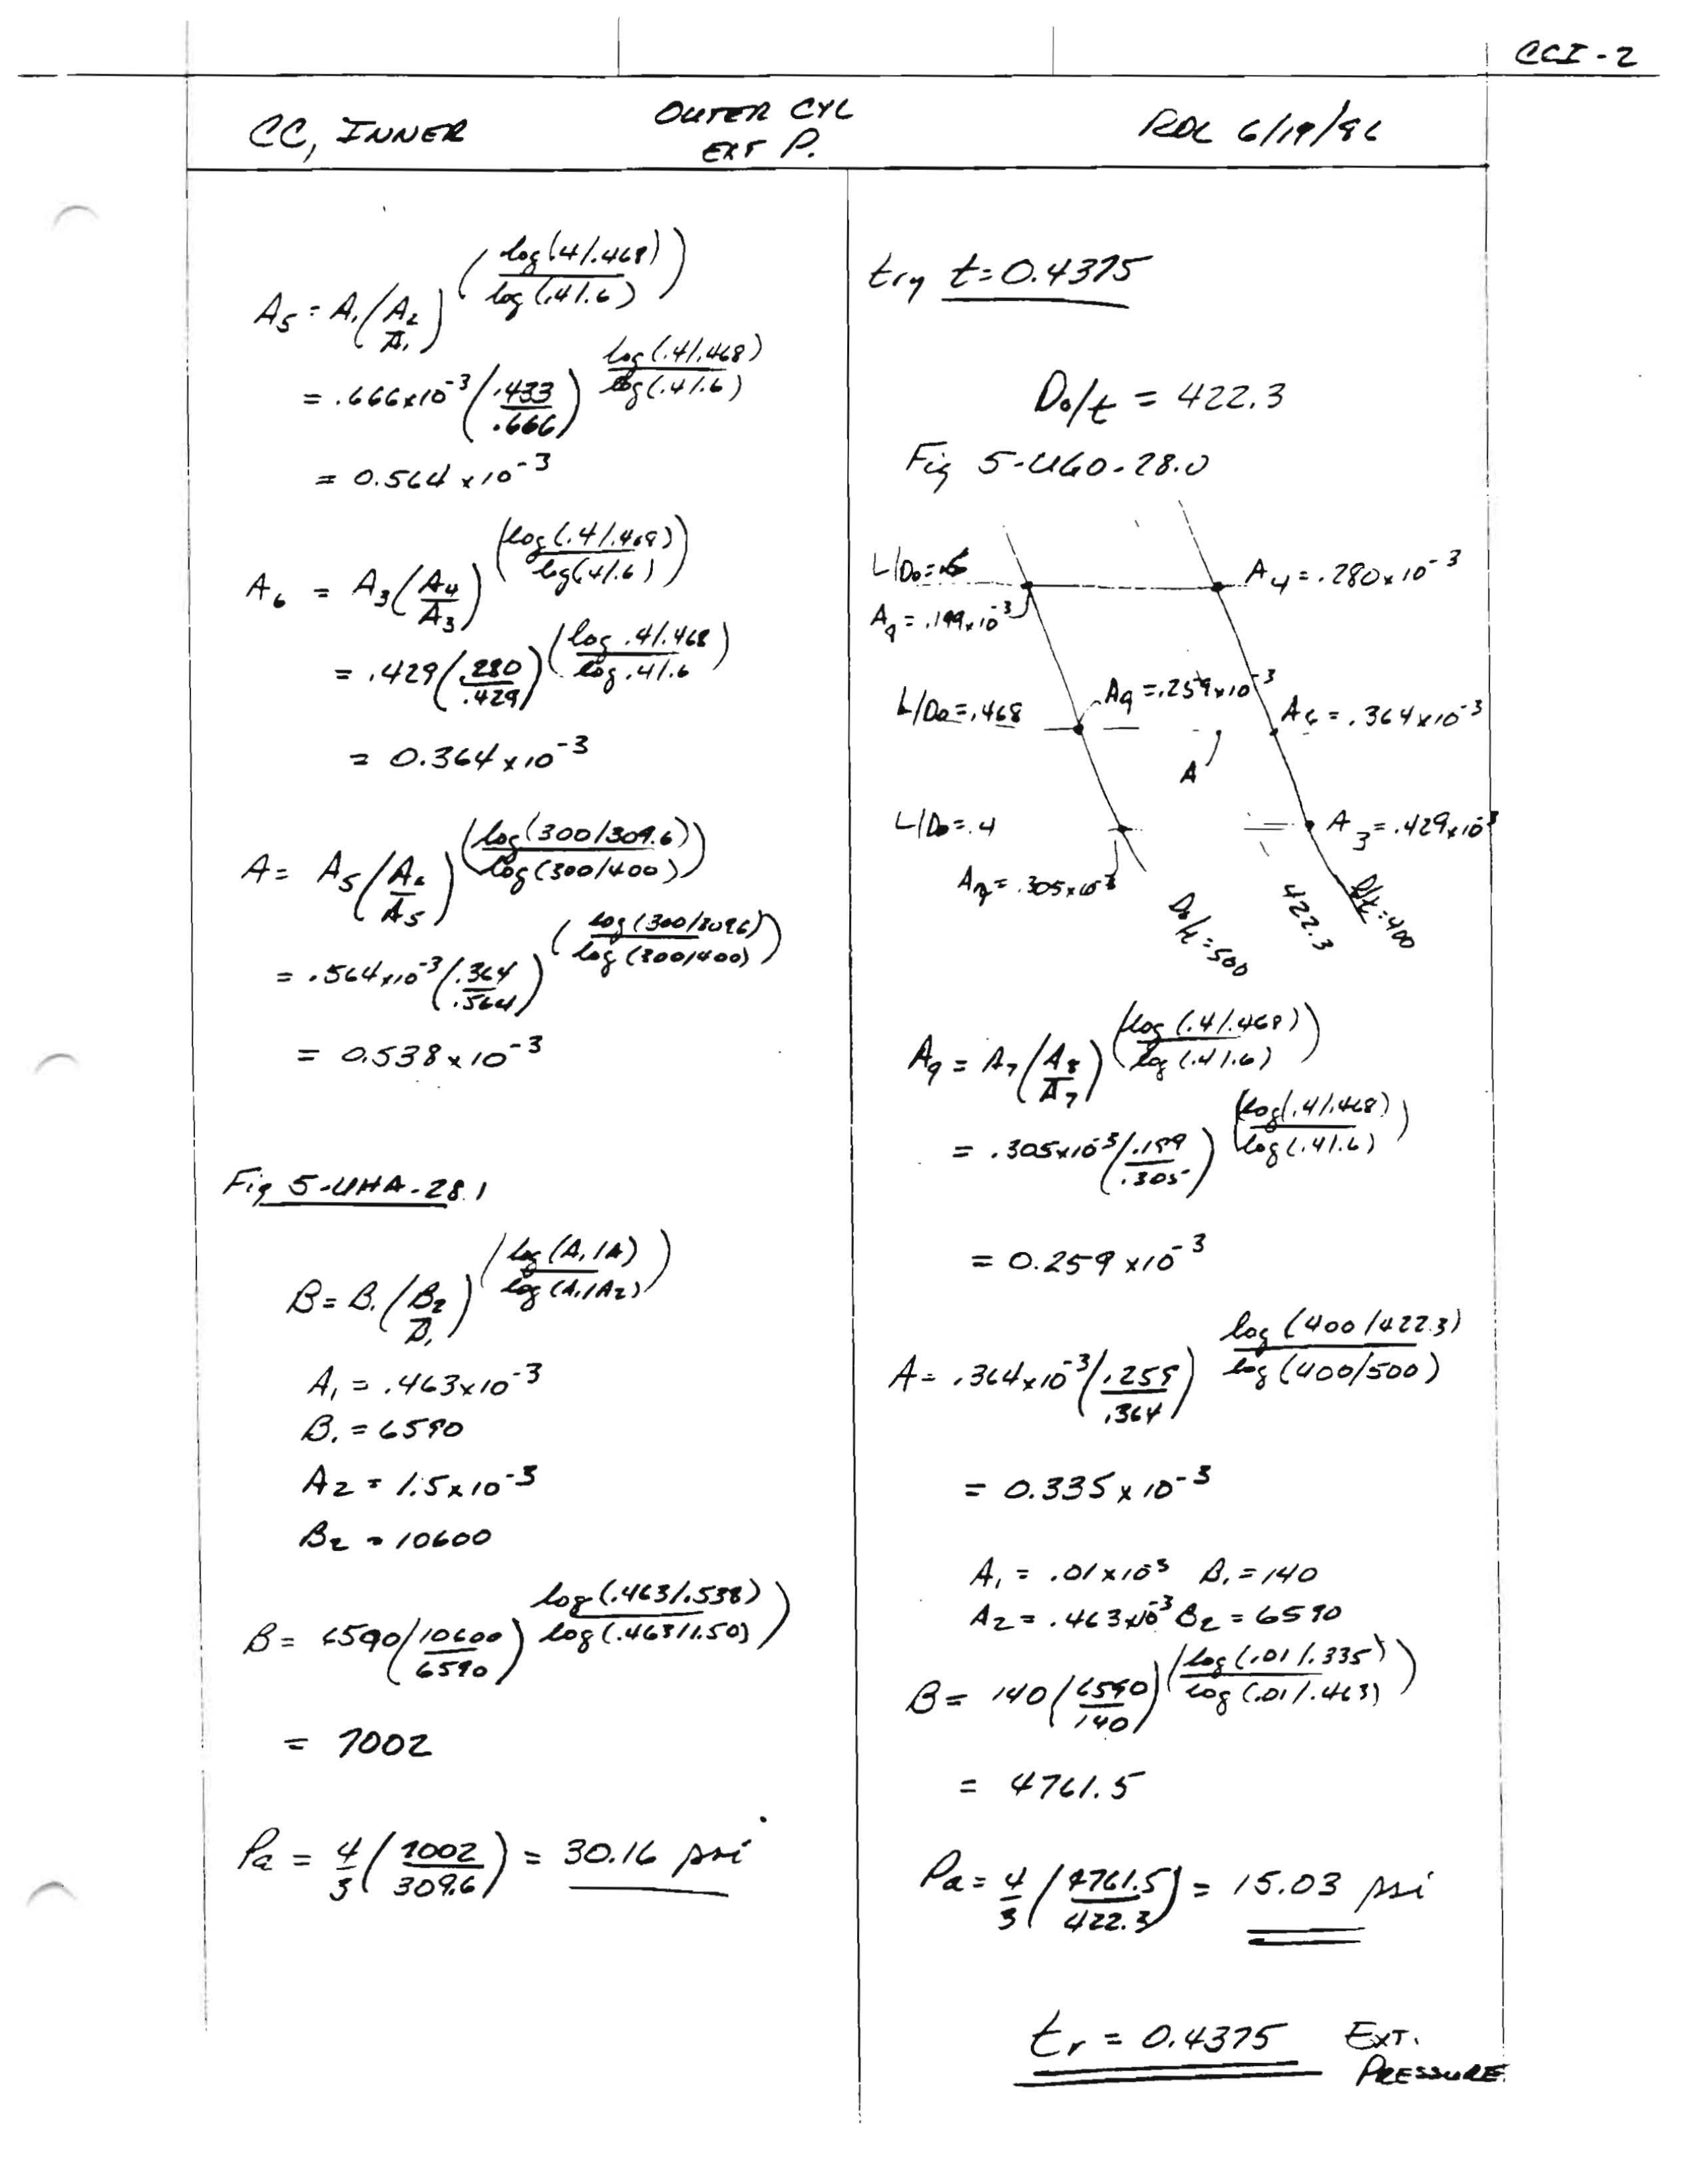 CCI-2
CC, INNER
OUTER CYL
EXT P.
RDL 6/19/86
A5 = A1 (A2/A1)^(log(.4/.468)/log(.4/.6))
= .666x10^-3 (.433/.666)^(log(.4/.468)/log(.4/.6))
= 0.564 x 10^-3
A6 = A3 (A4/A3)^(log(.4/.468)/log(.4/.6))
= .429 (.280/.429)^(log .4/.468/log .4/.6)
= 0.364 x 10^-3
A = A5 (A6/A5)^(log(300/309.6)/log(300/400))
= .564x10^-3 (.364/.564)^(log(300/309.6)/log(300/400))
= 0.538 x 10^-3
Fig 5-UHA-28.1
B = B1 (B2/B1)^(log(A1/A)/log(A1/A2))
A1 = .463x10^-3
B1 = 6590
A2 = 1.5x10^-3
B2 = 10600
B = 6590 (10600/6590)^(log(.463/.538)/log(.463/1.50))
= 7002
Pa = 4/3 (7002/309.6) = 30.16 psi
try t=0.4375
Do/t = 422.3
Fig 5-UGO-28.0
L/Do=.6
A4 = .280x10^-3
A8 = .199x10^-3
L/Do=.468
A9 = .259x10^-3
A6 = .364x10^-3
A
L/Do=.4
A3 = .429x10^-3
A7 = .305x10^-3
Do/t=500
422.3
D/t=400
A9 = A7 (A8/A7)^(log(.4/.468)/log(.4/.6))
= .305x10^-3 (.199/.305)^(log(.4/.468)/log(.4/.6))
= 0.259 x10^-3
A = .364x10^-3 (.259/.364)^(log(400/422.3)/log(400/500))
= 0.335 x 10^-3
A1 = .01x10^-3 B1 = 140
A2 = .463x10^-3 B2 = 6590
B = 140 (6590/140)^(log(.01/.335)/log(.01/.463))
= 4761.5
Pa = 4/3 (4761.5/422.3) = 15.03 psi
tr = 0.4375 EXT.
PRESSURE